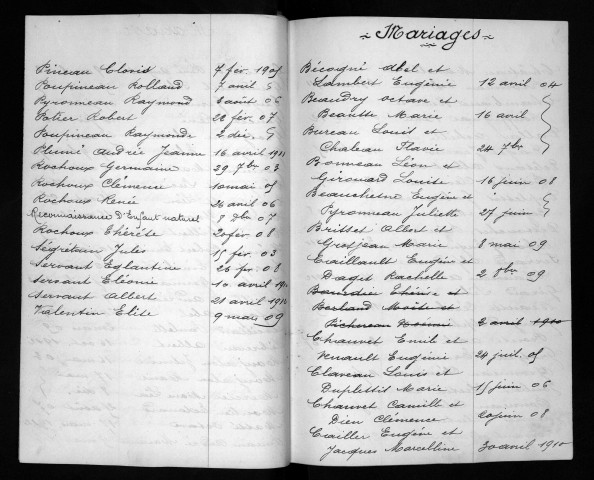 Pineau Cloris 7 fév. 1905
Poupineau Rolland 7 avril
Pyronneau Raymond 8 août 06
Potier Robert 28 fév. 07
Poupineau Raymonde 2 déc.
Plumé Andrée Jeanne 16 avril 1911
Rochoux Germaine 29 7bre 03
Rochoux Clémence 10 mai 05
Rochoux Renée 26 avril 06
Reconnaissance d'Enfant naturel 8 Xbre 07
Rochoux Thérèse 20 fév 08
Ségrétain Jules 15 fév. 03
Servant Eglantine 26 fév. 08
Servant Eléonie 10 avril
Servant Albert 21 avril
Valentin Elise 9 mars 09
Mariages
Bécogné Abel et
Lambert Eugénie 12 avril 04
Beaudry Octave et
Beautte Marie 16 avril
Bureau Louis et
Chaleau Flavie 24 7bre
Bonneau Léon et
Girouard Louise 16 juin 08
Beauchesne Eugène et
Pyronneau Juliette 27 juin
Brittet Albert et
Grosjean Marie 8 mai 09
Caillault Eugène et
Daget Rachelle 2 8bre 09
et
Berland et
Pichereau Noémie 2 avril 1910
Chauvet Emile et
Renault Eugénie 24 juil. 05
Claveau Louis et
Duplettit Marie 15 juin 06
Chauvet Camille et
Dieu Clémence 20 juin 08
Cailler Eugène et
Jacques Marcelline 30 avril 1910